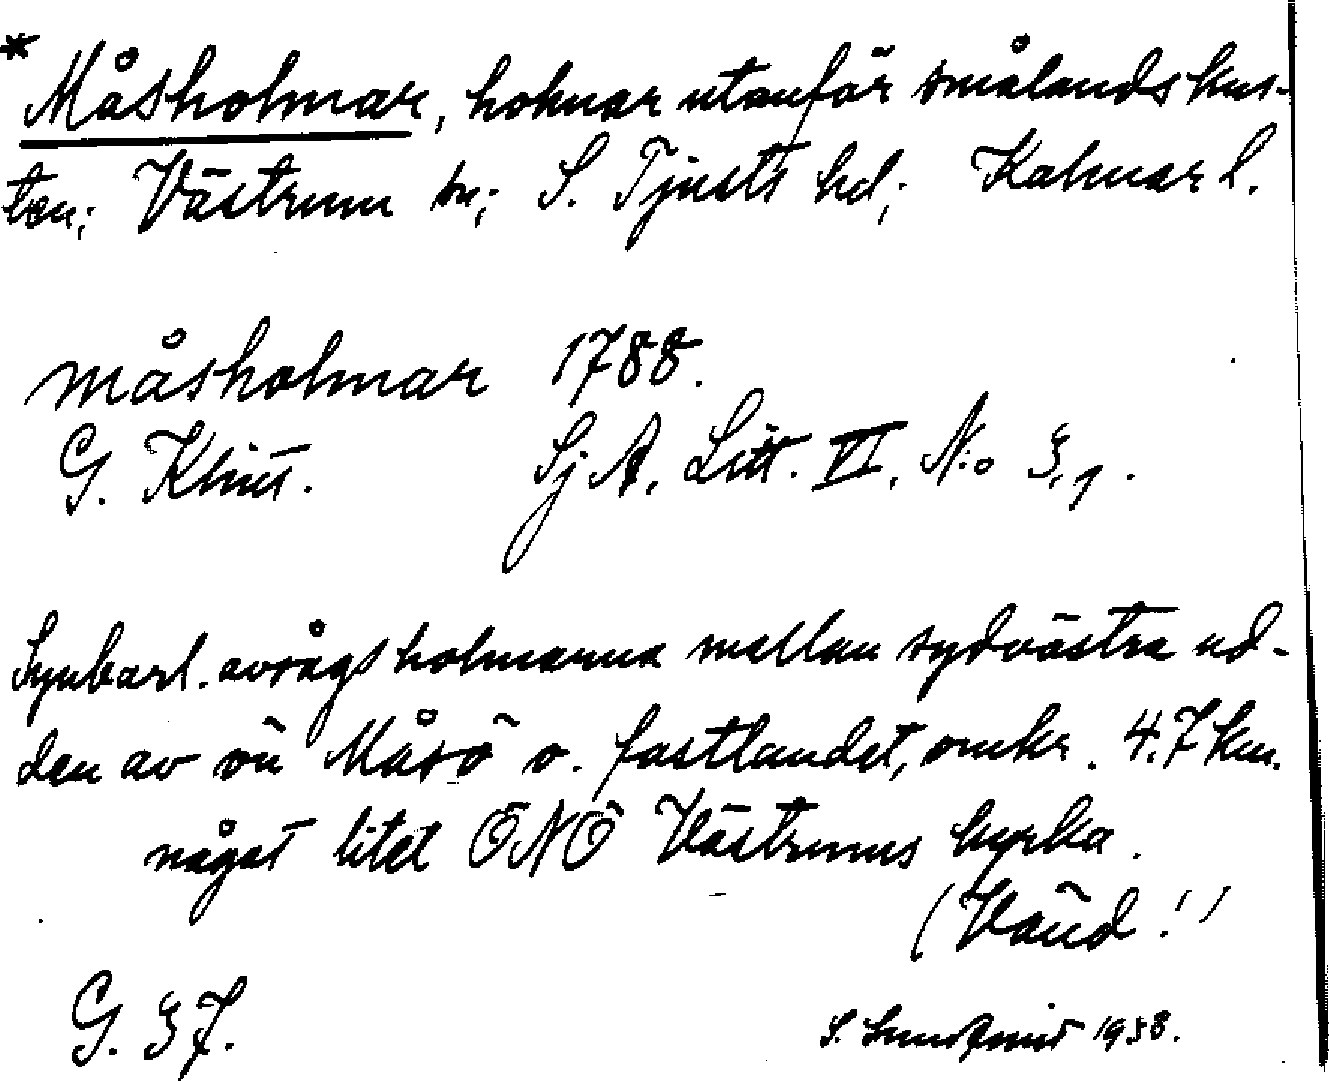 * Måsholmar, holmar utanför smålandskus-
ten; Västrum sn; S. Tjusts hd; Kalmar l.
måsholmar 1788.
G. Klint. Sj A. Litt. VI, N:o 3,1.
Synbarl. avsågs holmarna mellan sydvästra ud-
den av ön Måsö o. fastlandet, omkr. 4.7 km.
något litet ÖNÖ Västrums kyrka.
(Vänd!)
G. 37. S. Lundqvist 1938.